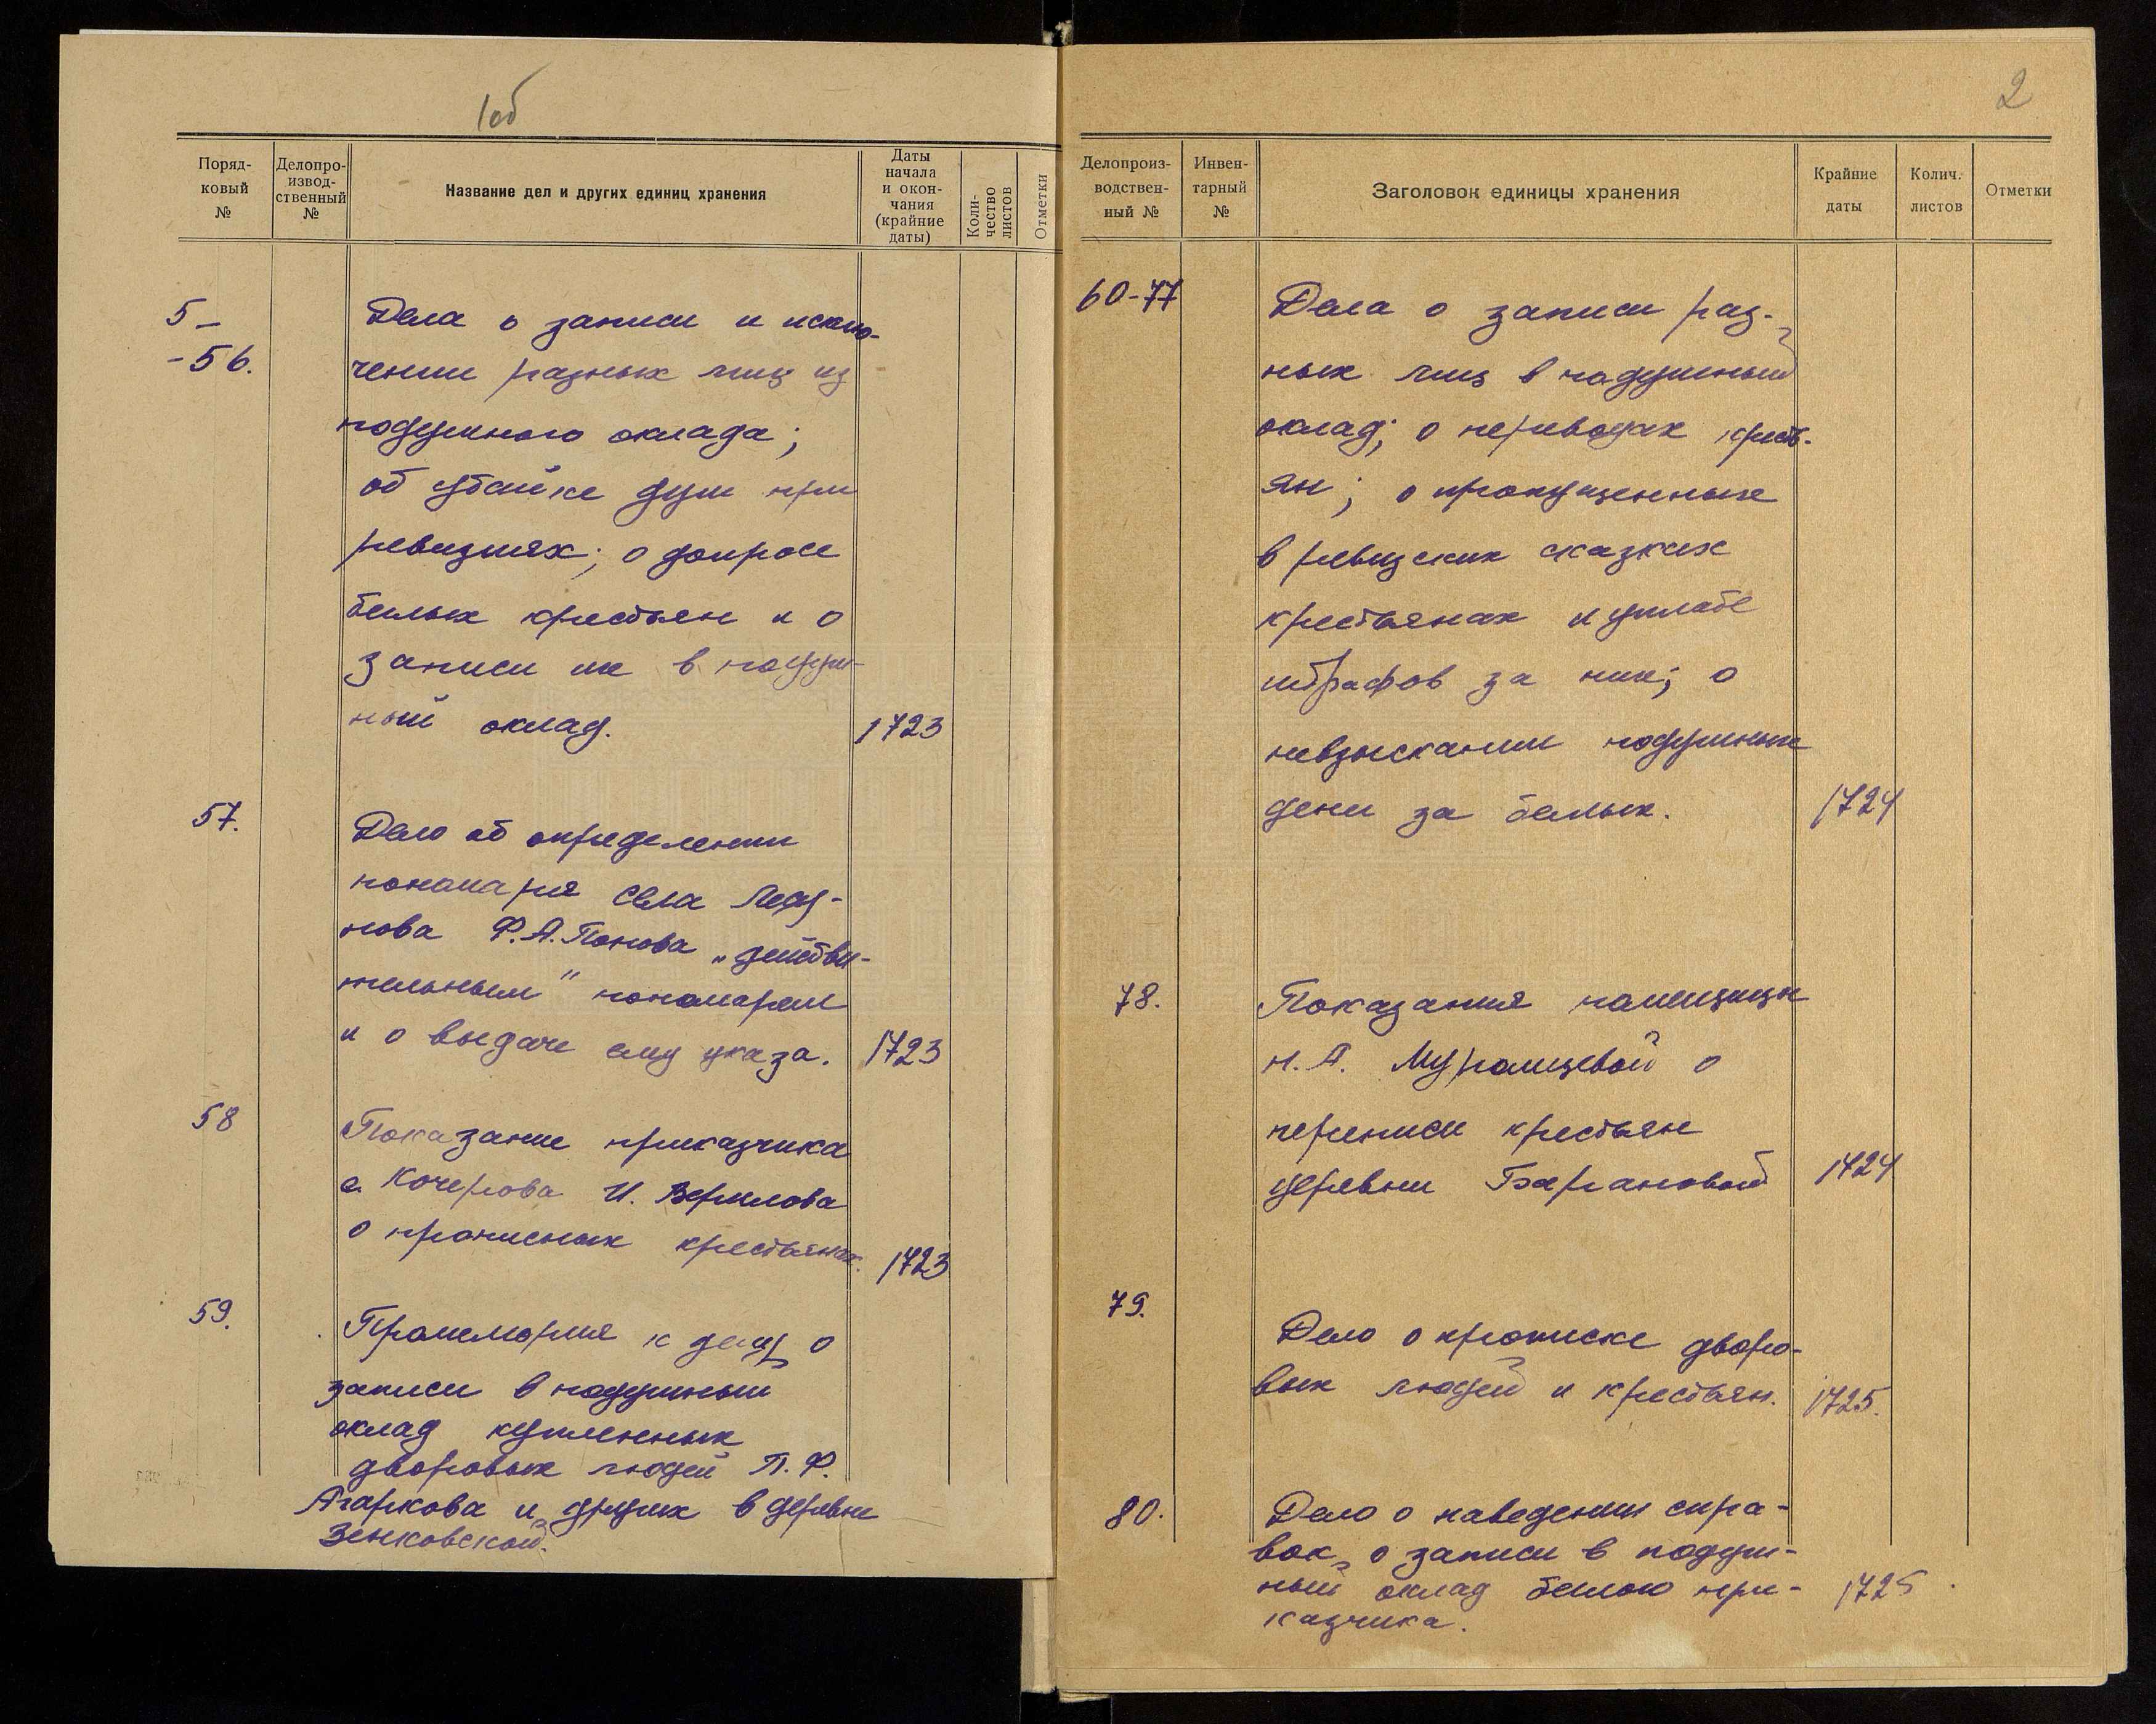 1об
Поряд-
ковый
№
Делопро-
извод-
ственный
№
Название дел и других единиц хранения
Даты
начала
и окон-
чания
(крайние
даты)
Коли-
чество
листов
Отметки
5-
-56.
Дела о записи и исклю-
чении разных лиц из
подушного оклада;
об убойке душ при
ревизиях; о допросе
беглых крестьян и о
записи их в подуш-
ный оклад.
1723
57.
Дело об определении
пономаря села
нова Ф.А. Попова „действи-
тельным" пономарем
и о выдаче ему указа.
1723
58
Показание приказчика
с. Кочерова И.
о прописных крестьянах.
1723
59.
Промемория к делу о
записи в подушный
оклад купленных
дворовых людей П. Ф.
Агаркова и других в деревне
Зенковской.
2
Делопроиз-
водствен-
ный №
Инвен-
тарный
№
Заголовок единицы хранения
Крайние
даты
Колич.
листов
Отметки
60-77
Дела о записи раз-
ных лиц в подушный
оклад; о переводах кресть-
ян; о пропущенных
в ревизских сказках
крестьянах и уплате
штрафов за них; о
невзыскании подушных
денег за беглых.
1724
78.
Показания помещицы
Н. А. Муромцевой о
переписи крестьян
деревни Барановой
1724
79.
Дело о прописке дворо-
вых людей и крестьян.
1725.
80.
Дело о наведении спра-
вок о записи в подуш-
ный оклад беглого при-
казчика.
1725